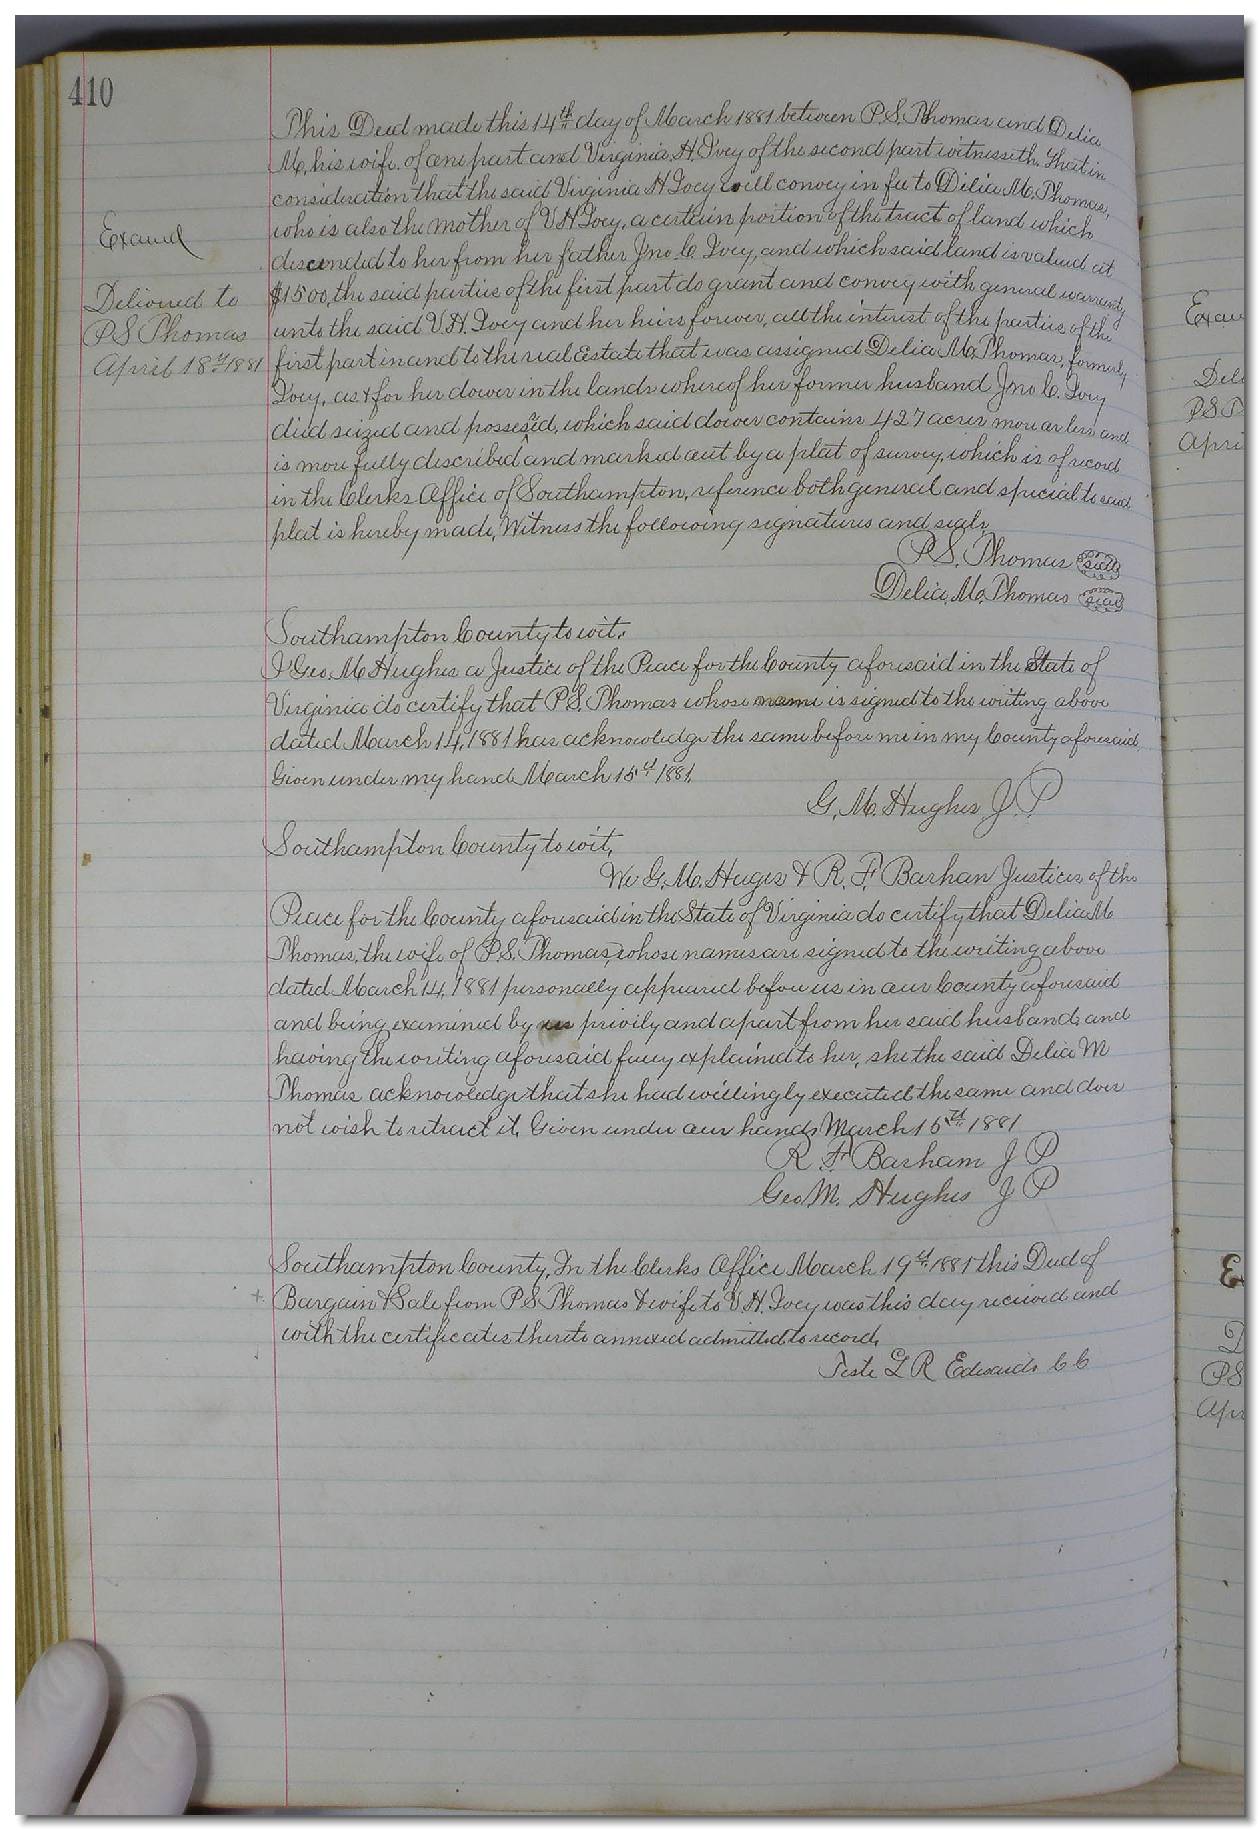 410
This Deed made this 14th day of March 1881 between P.S. Thomas and Delia
M, his wife of one part and Virginia H. Ivey of the second part witnesseth. That in
consideration that the said Virginia H Ivey will convey in fee to Delia M. Thomas,
who is also the mother of V H Ivey, a certain portion of the tract of land which
descended to her from her father Jno. C. Ivey, and which said land is valued at
$1500, the said parties of the first part do grant and convey with general warranty
unto the said V.H. Ivey and her heirs forever, all the interest of the parties of the
first part in and to the real Estate that was assigned Delia M. Thomas, formerly
Ivey, as & for her dower in the lands whereof her former husband Jno C. Ivey
died seized and possessed, which said dower contains 427 acres more or less and
is more fully described and marked out by a plat of survey, which is of record
in the Clerks Office of Southampton, reference both general and special to said
plat is hereby made, Witness the following signatures and seals
P.S. Thomas seal
Delia. M. Thomas seal
Examd
Delivered to
P S Thomas
April 18th 1881
Southampton County to wit.
I Geo. M Hughes a Justice of the Peace for the County aforesaid in the State of
Virginia do certify that P.S. Thomas whose name is signed to the writing above
dated March 14, 1881 has acknowledge the same before me in my County aforesaid,
Given under my hand March 15th 1881,
G. M. Hughes J. P
Southampton County to wit,
We G. M. Huges & R. F. Barhan Justices of the
Peace for the County aforesaid in the State of Virginia do certify that Delia M
Thomas, the wife of P.S. Thomas, whose names are signed to the writing above
dated March 14, 1881 personally appeared before us in our County aforesaid
and being examined by us privily and apart from her said husband, and
having the writing aforesaid fully explained to her, she the said Delia M
Thomas acknowledge that she had willingly executed the same and does
not wish to retract it, Given under our hands March 15th 1881
R. F Barham J P
Geo M. Hughes J P
Southampton County, In the Clerks Office March 19th 1881 this Deed of
Bargain & Sale from P S Thomas & wife to V.H. Ivey was this day received and
with the certificates thereto annexed admitted to record,
Teste L R Edwards C C
Exam
Deli
P S T
Apri
Ex
D
PS
Apr